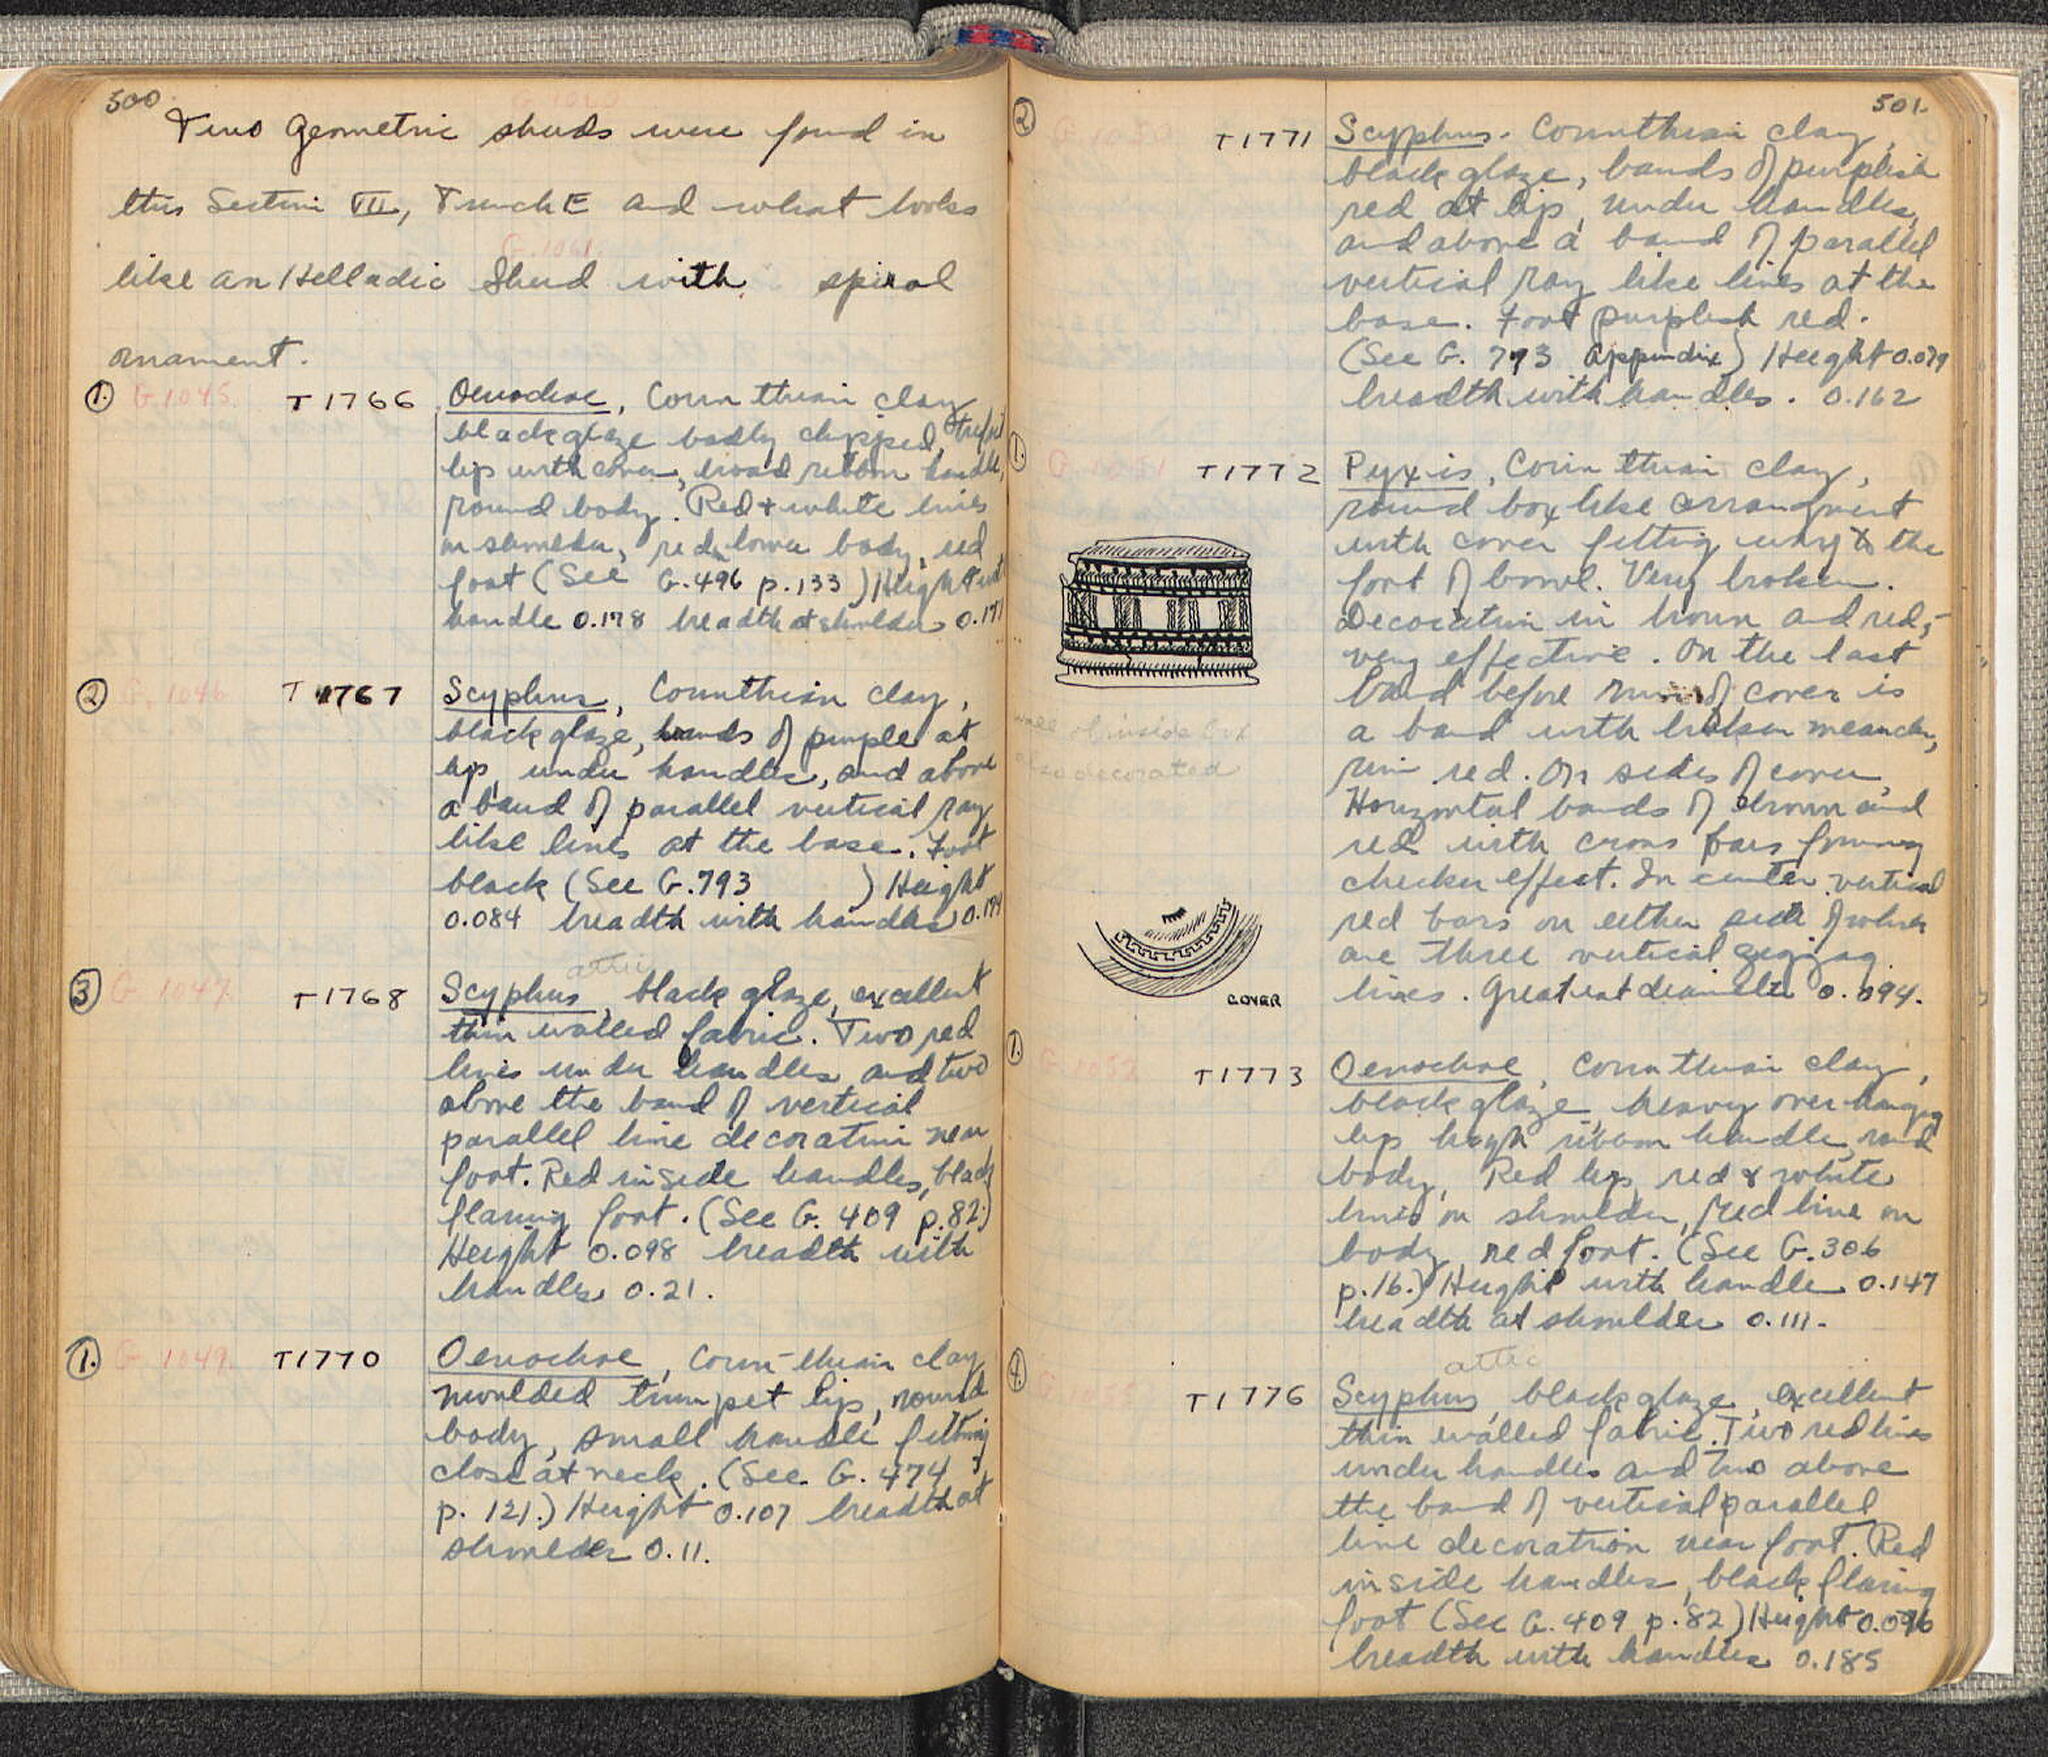 500
G.1060
Two Geometric sherds were found in
this Section VII, Trench E and what looks
G.1061.
like an Helladic Sherd with spiral
ornament.
1. G.1045. T1766 Oenochoe, Corinthian clay
black glaze badly chipped, trefoil
lip with cover, broad ribbon handle,
round body. Red + white lines
on shoulder, red lower body, red
foot (See G.496 p.133) Height with
handle 0.178 breadth at shoulder
2 G.1046 T 1767 Scyphus, Corinthian clay,
black glaze, bands of purple at
lip, under handles, and above
a band of parallel vertical ray
like lines at the base. Foot
black (See G.793 ) Height
0.084 breadth with handles 0.174
attic
3 G 1047. T1768 Scyphus, black glaze, excellent
thin walled fabric. Two red
lines under handles and two
above the band of vertical
parallel line decoration near
foot. Red inside handles, black
flaring foot. (See G. 409 p.82.)
Height 0.098 breadth with
handles 0.21.
1. G 1049. T1770 Oenochoe, Corinthian clay
moulded trumpet lip, round
body, small handle fitting
close at neck. (See G. 474
p. 121.) Height 0.107 breadth at
shoulder 0.11.
501.
2 G.1050 T1771 Scyphus. Corinthian clay,
black glaze, bands of purplish
red at lip, under handles,
and above a band of parallel
vertical ray like lines at the
base. Foot purplish red.
(See G. 793 Appendix) Height 0.079
breadth with handles. 0.162
1. G.1051 T1772 Pyxis, Corinthian clay,
round box like arrangment
with cover fitting way to the
foot of bowl. Very broken.
Decoration in brown and red,-
very effective. On the last
band before rim of cover is
a band with broken meander,
rim red. On sides of cover
Horizontal bands of brown and
red with cross bars forming
checker effect. In center vertical
red bars on either side of which
are three vertical zigzag
lines. Greatest diameter 0.094.
wall of inside box
also decorated
COVER
1. G.1052 T1773 Oenochoe, Corinthian clay,
black glaze, heavy over hanging
lip high ribbon handle, round
body, Red lip, red & white
lines on shoulder, red line on
body, red foot. (See G.306
p.16.) Height with handle 0.147
breadth at shoulder 0.111.
attic
4. T1776 Scyphus, black glaze, excellent
thin walled fabric. Two red lines
under handles and two above
the band of vertical parallel
line decoration near foot. Red
inside handles, black flaring
foot (See G.409 p.82) Height 0.096
breadth with handles 0.185